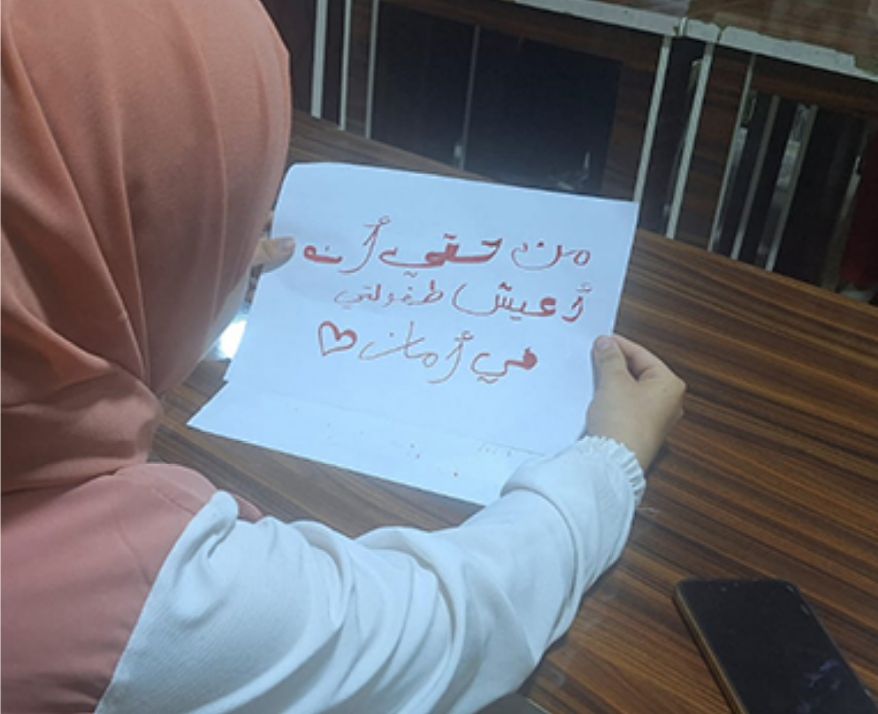 من حقي أن
أعيش طفولتي
في أمان